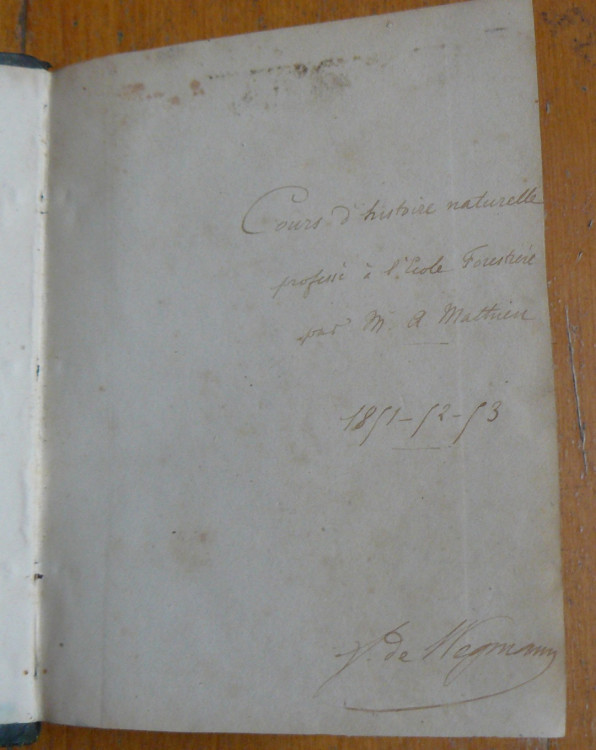 Cours d'histoire naturelle
professé à l'Ecole Forestière
par M. A Mathieu
1851-52-53
de Wegmann